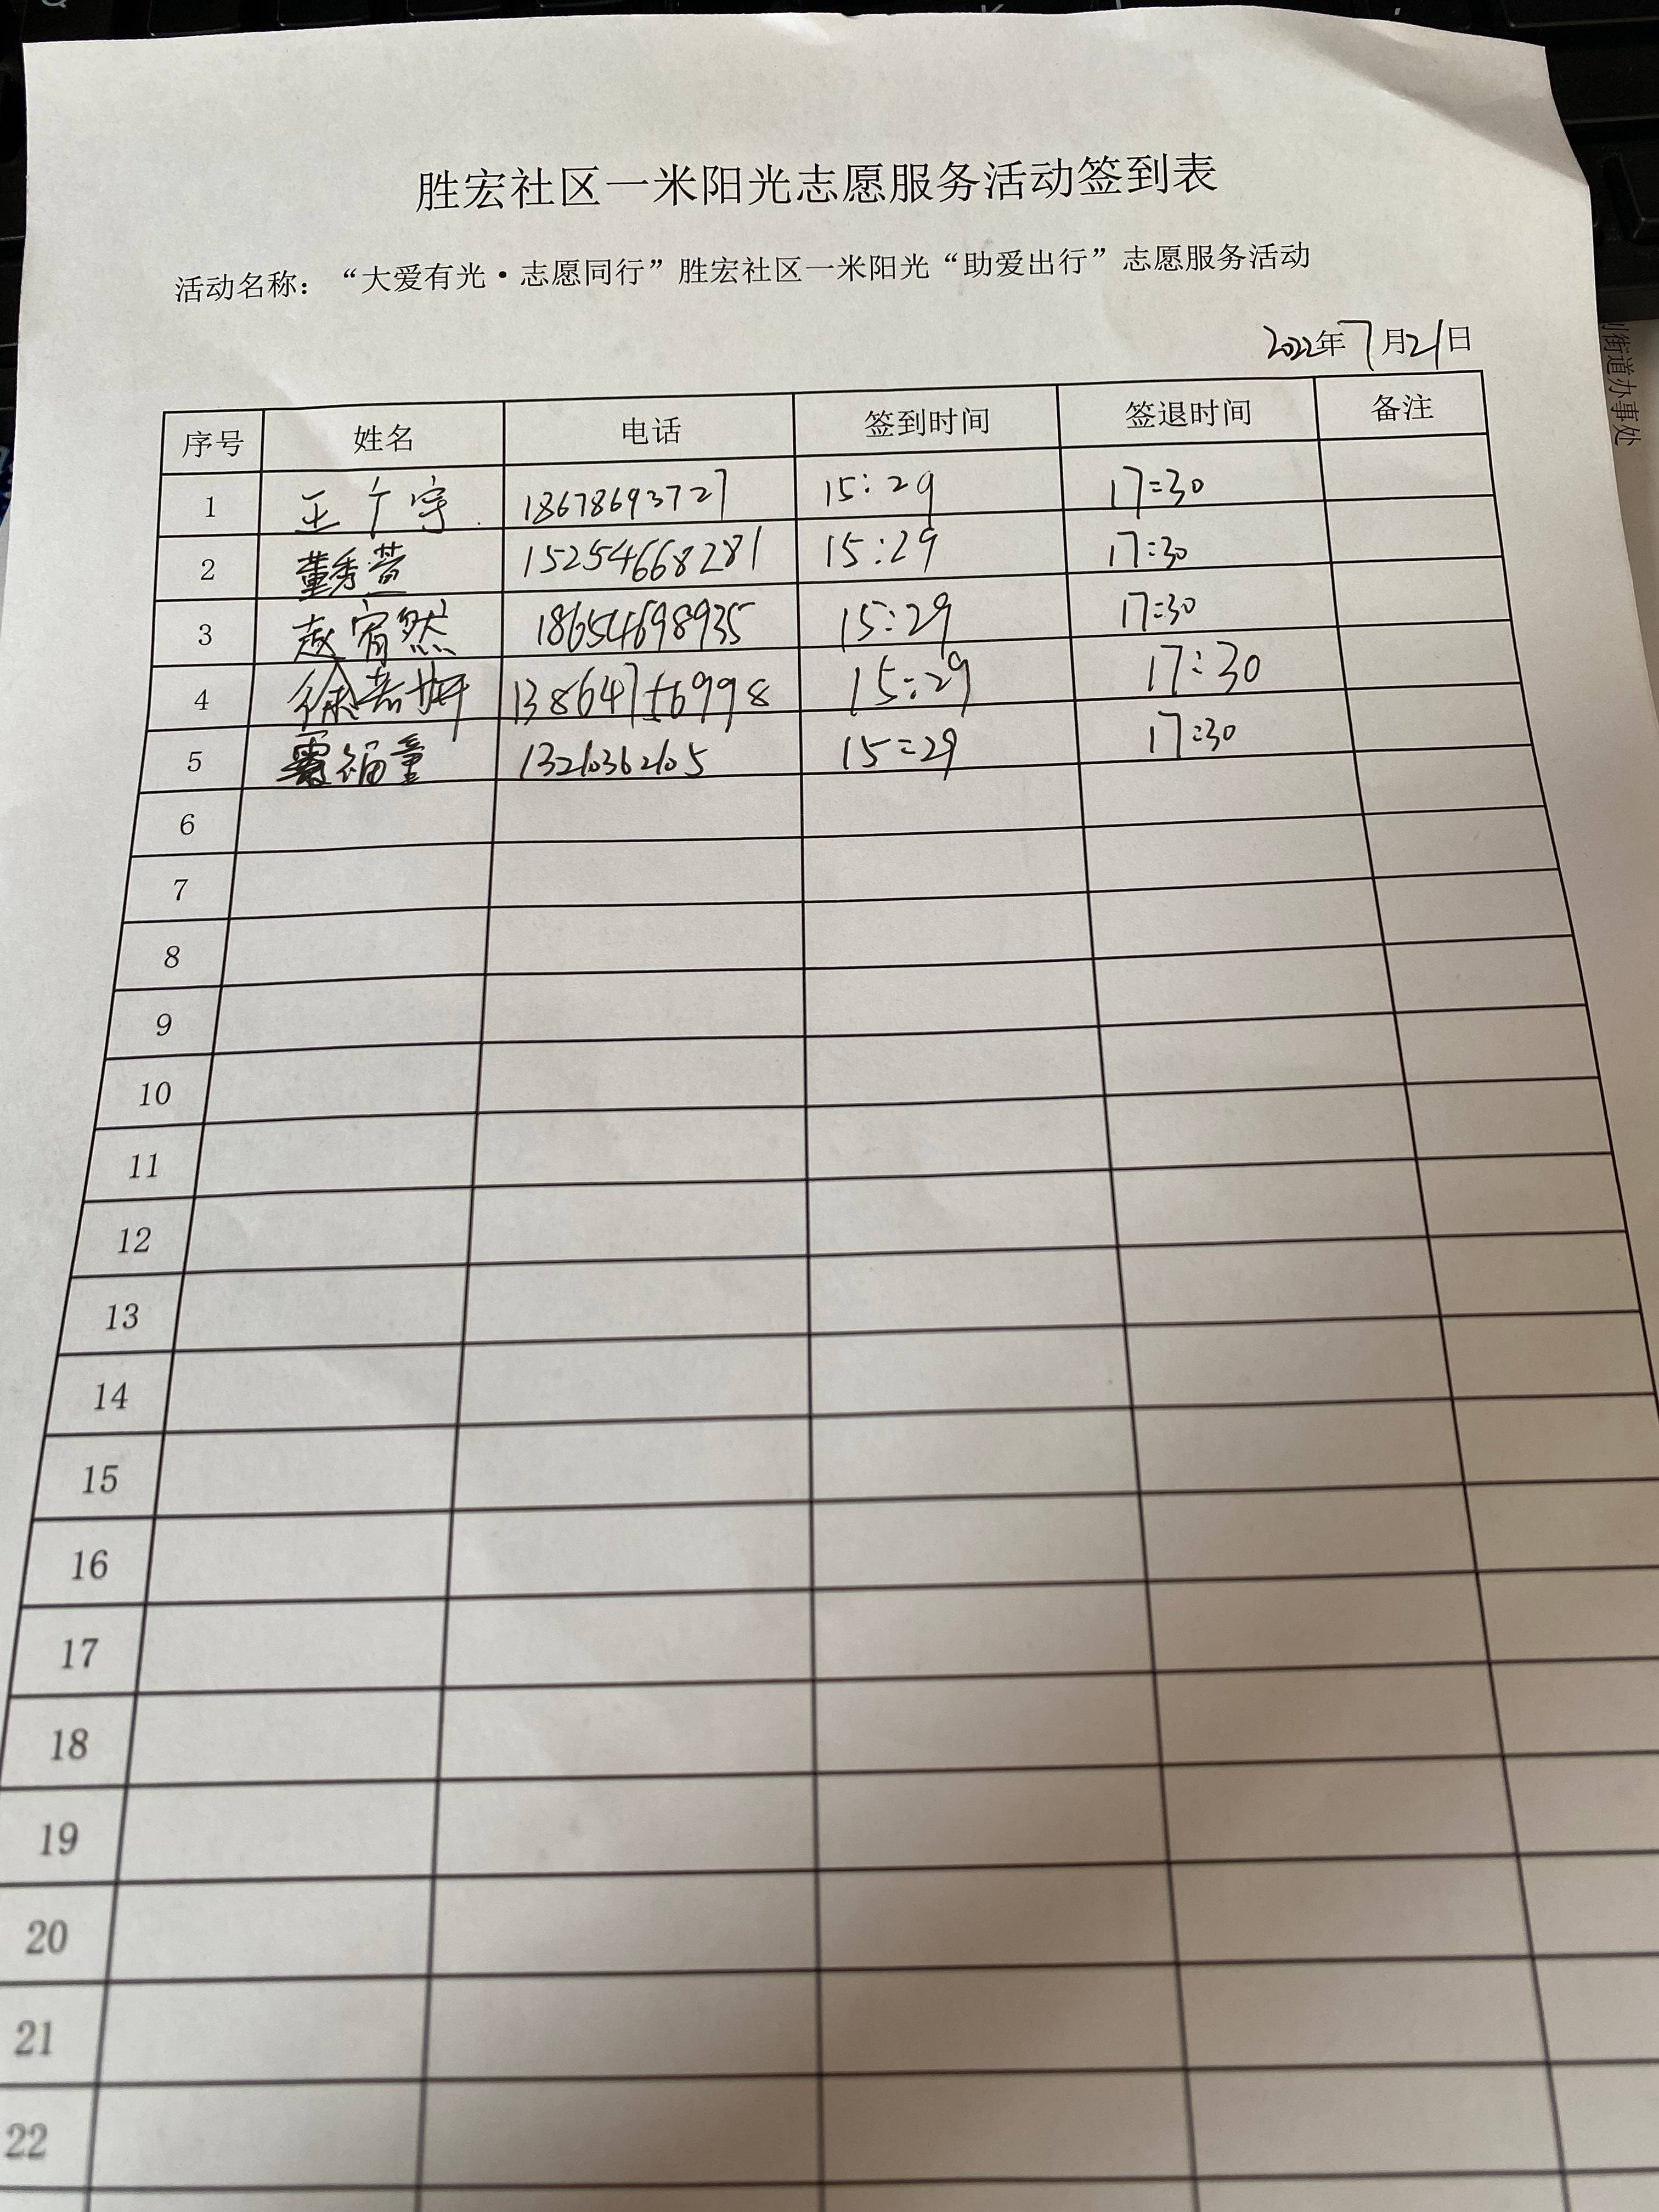 胜宏社区一米阳光志愿服务活动签到表
活动名称：“大爱有光·志愿同行”胜宏社区一米阳光“助爱出行”志愿服务活动
2022年7月21日
序号 姓名 电话 签到时间 签退时间 备注
1 王广宇 18678693727 15:29 17:30
2 董秀萱 15254668281 15:29 17:30
3 赵宥然 18654698935 15:29 17:30
4 徐若妍 13864756998 15:29 17:30
5 福童 13210362105 15:29 17:30
6
7
8
9
10
11
12
13
14
15
16
17
18
19
20
21
22
街道办事处